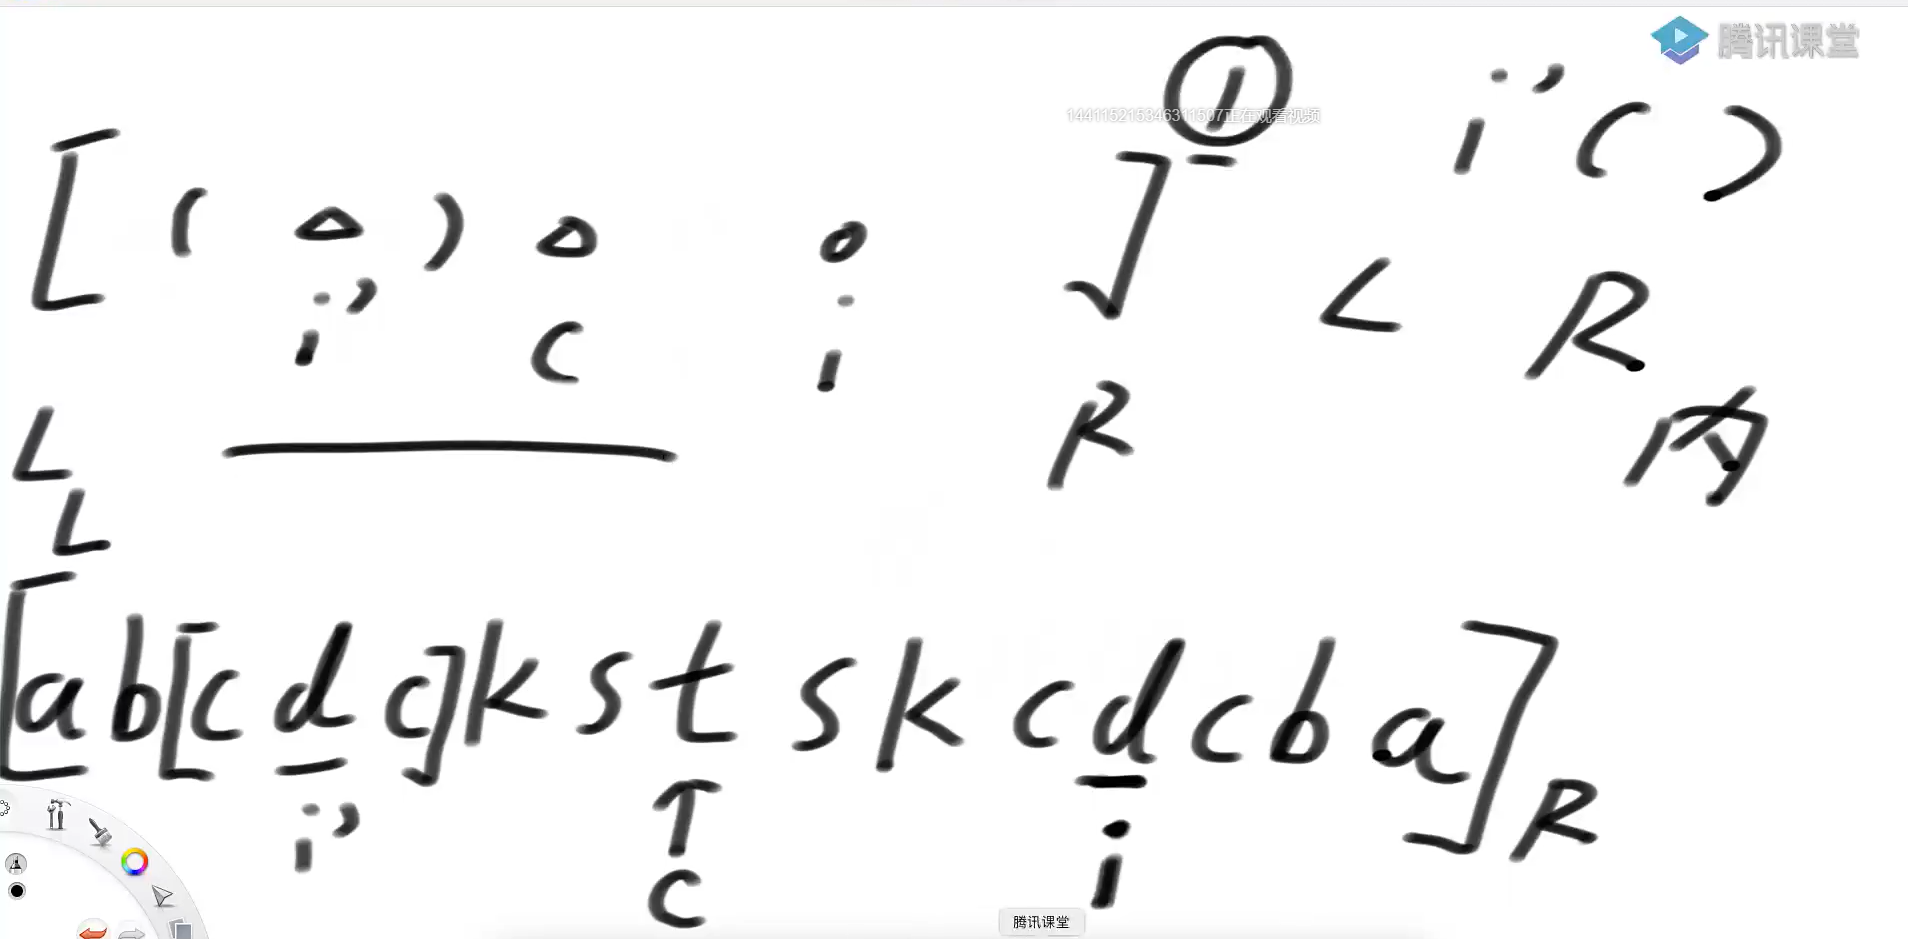 腾讯课堂
① i' ( )
144115215346311507正在观看视频
[ ( △ ) △ o ]
i' C i
L R
L R 内
L
[ a b [ c d c ] k s t s k c d c b a ] R
i' ↑ i
C
腾讯课堂